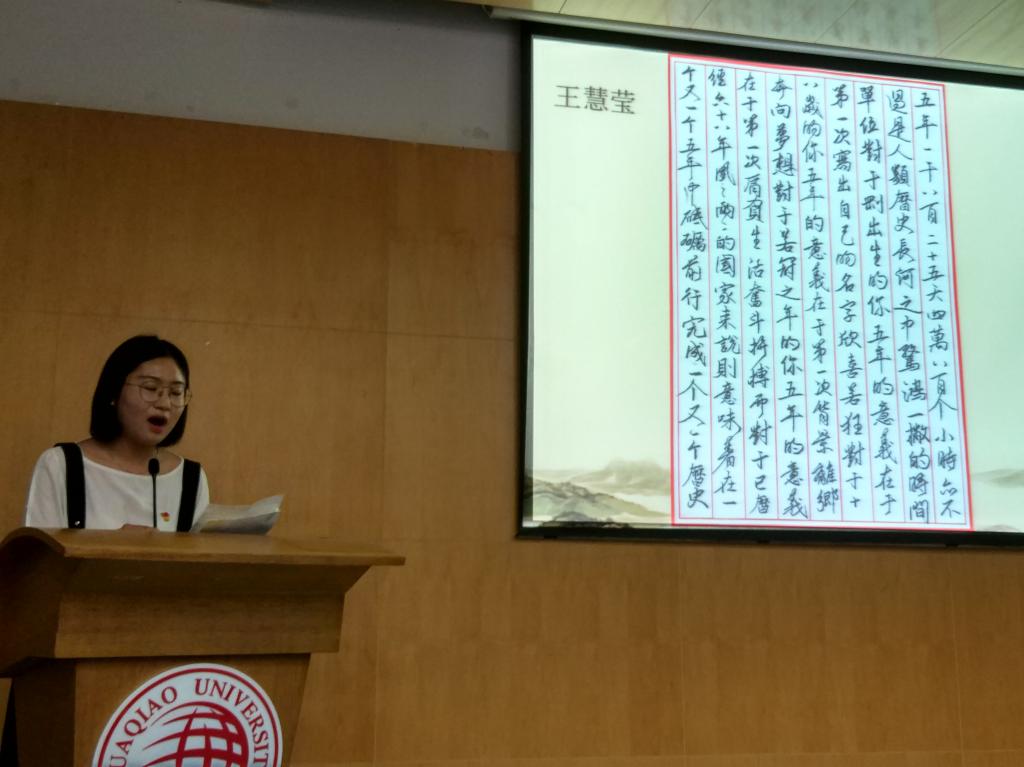 王慧莹
五年一千八百二十五天四萬八百个小時亦不
過是人類曆史長河之中驚鴻一撇的時間
單位對于剛出生的你五年的意義在于
第一次寫出自己的名字欣喜若狂對于十
八歲的你五年的意義在于第一次背景離鄉
奔向夢想對于若冠之年的你五年的意義
在于第一次肩負生活奮斗拚搏而對于已曆
經六十八年風々雨々的國家来說則意味着在一
个又一个五年中砥礪前行完成一个又一个曆史
UAQIAO UNIVERSIT